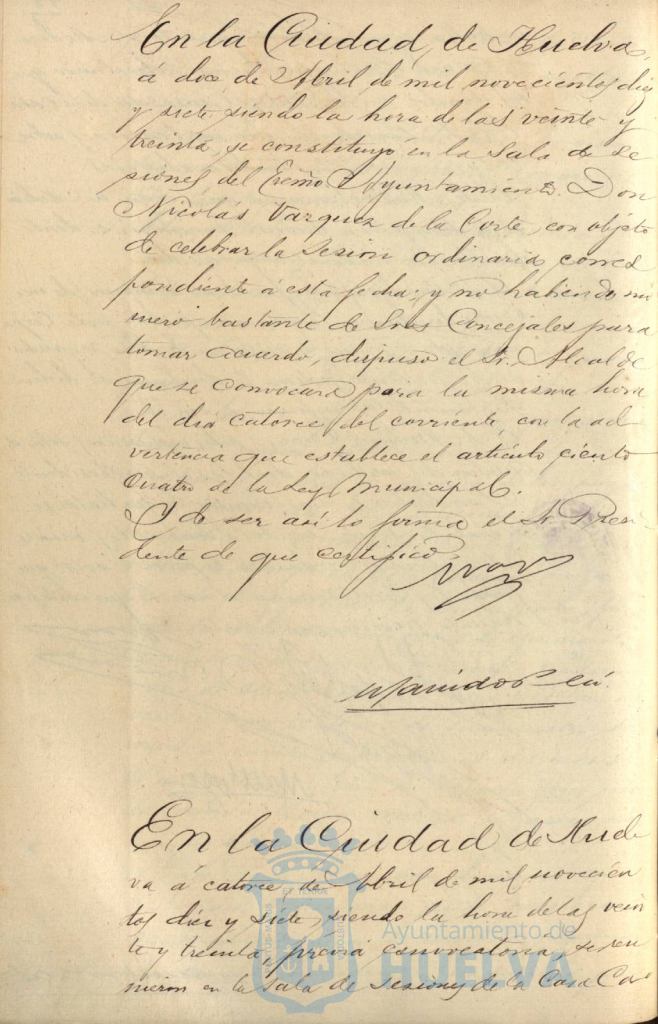 En la Ciudad de Huelva,
á doce de Abril de mil novecientos diez
y siete, siendo la hora de las veinte y
treinta, se constituyó en la Sala de Se
siones del Excmo Ayuntamiento Don
Nicolás Vazquez de la Corte, con objeto
de celebrar la Sesion ordinaria corres
pondiente á esta fecha; y no habiendo nú
mero bastante de Sres Concejales para
tomar acuerdo, dispuso el Sr. Alcalde
que se convocara para la misma hora
del dia catorce del corriente, con la ad
vertencia que establece el artículo ciento
cuatro de la Ley Municipal.
Y de ser así lo firma el Sr Presi-
dente de que certifico.
En la Ciudad de Huel
va á catorce de Abril de mil novecien
tos diez y siete, siendo la hora de las vein
te y treinta, previa convocatoria, se reu
nieron en la Sala de Sesiones de la Casa Ca
Ayuntamiento de
HUELVA